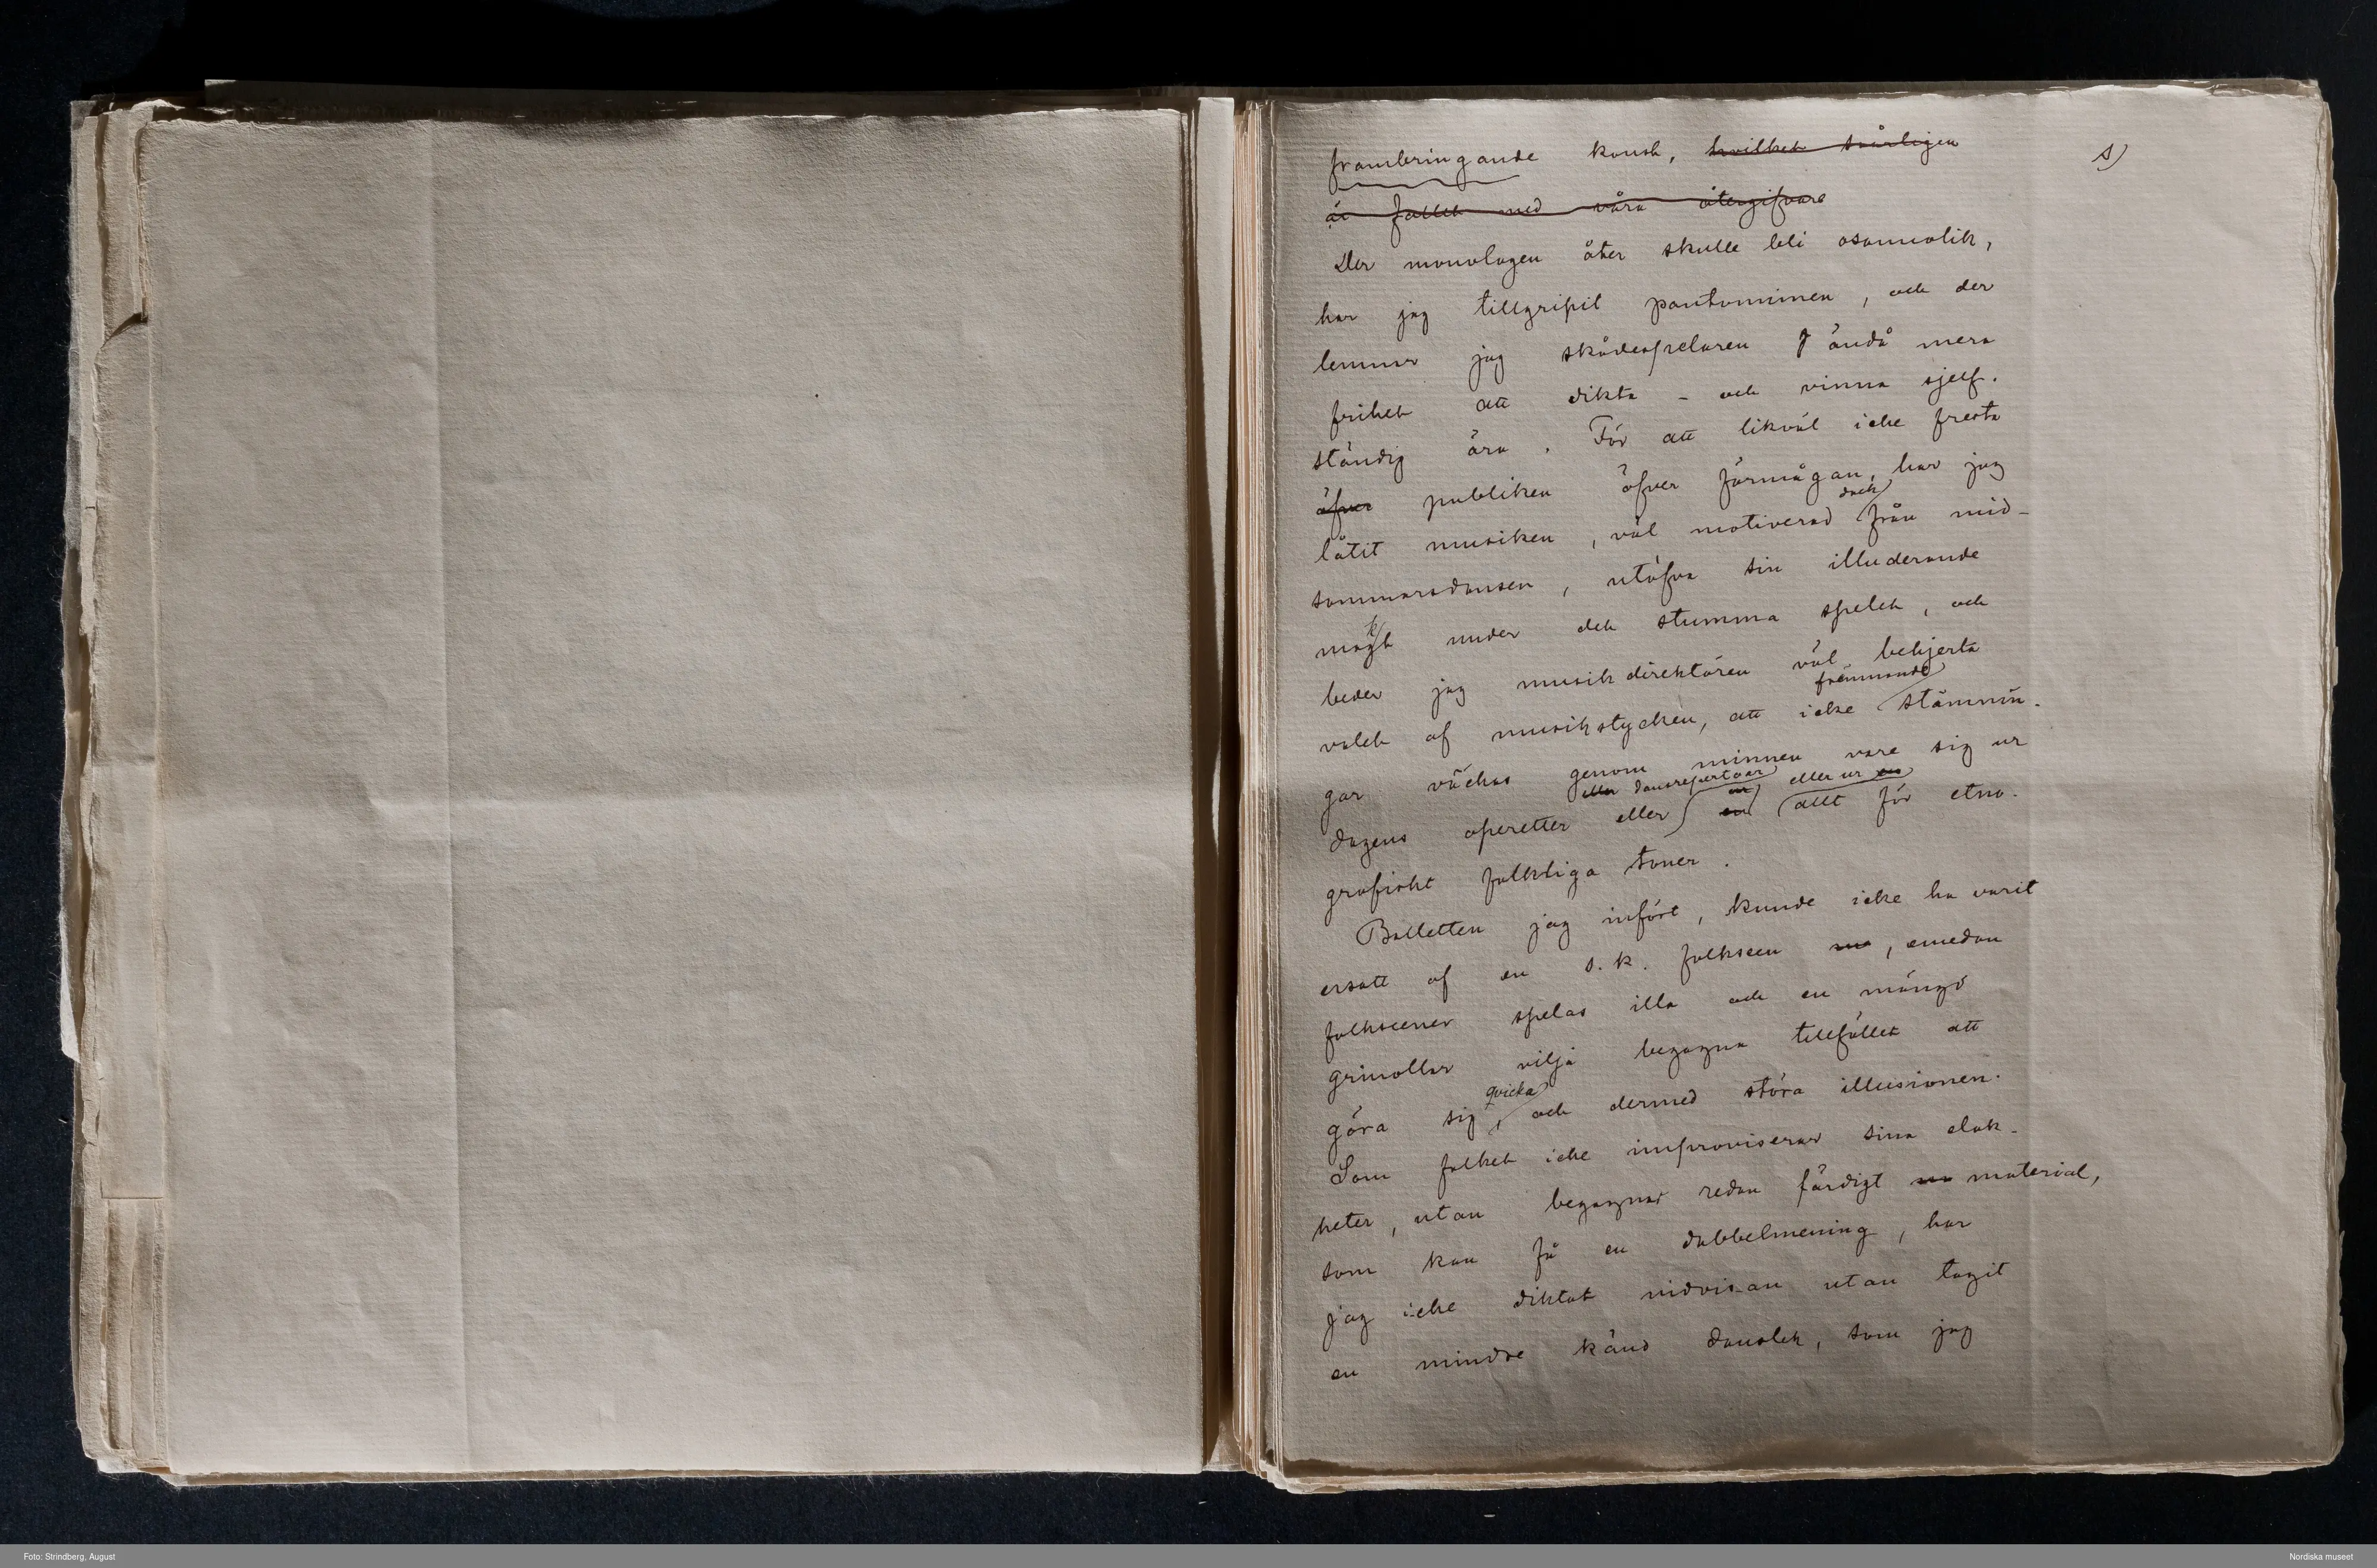 frambringande konst, hvilket svårligen s)
är fallet med våra återgifvare
Der monologen åter skulle bli osannolik,
har jag tillgripit pantomimen, och der
lemnar jag skådespelaren ändå mera
frihet att dikta – och vinna sjelf-
ständig ära. För att likväl icke fresta
öfver publiken öfver förmågan, har jag
dock
låtit musiken, väl motiverad från mid-
sommarsdansen, utöfva sin illuderande
k
magt under det stumma spelet, och
beder jag musikdirektören väl behjerta
främmande
valet af musikstycken, att icke stämnin-
gar väckas genom minnen vare sig ur
eller dansrepertoar eller ur en
dagens operetter eller en allt för etno-
grafiskt folkliga toner.
Balletten jag infört, kunde icke ha varit
ersatt af en s.k. folkscen, emedan
folkscener spelas illa och en mängd
grinollar vilja begagna tillfället att
qvicka
göra sig, och dermed störa illusionen.
Som folket icke improviserar sina elak-
heter, utan begagnar redan färdigt material,
som kan få en dubbelmening, har
jag icke diktat nidvisan utan tagit
en mindre känd danslek, som jag
Foto: Strindberg, August
Nordiska museet